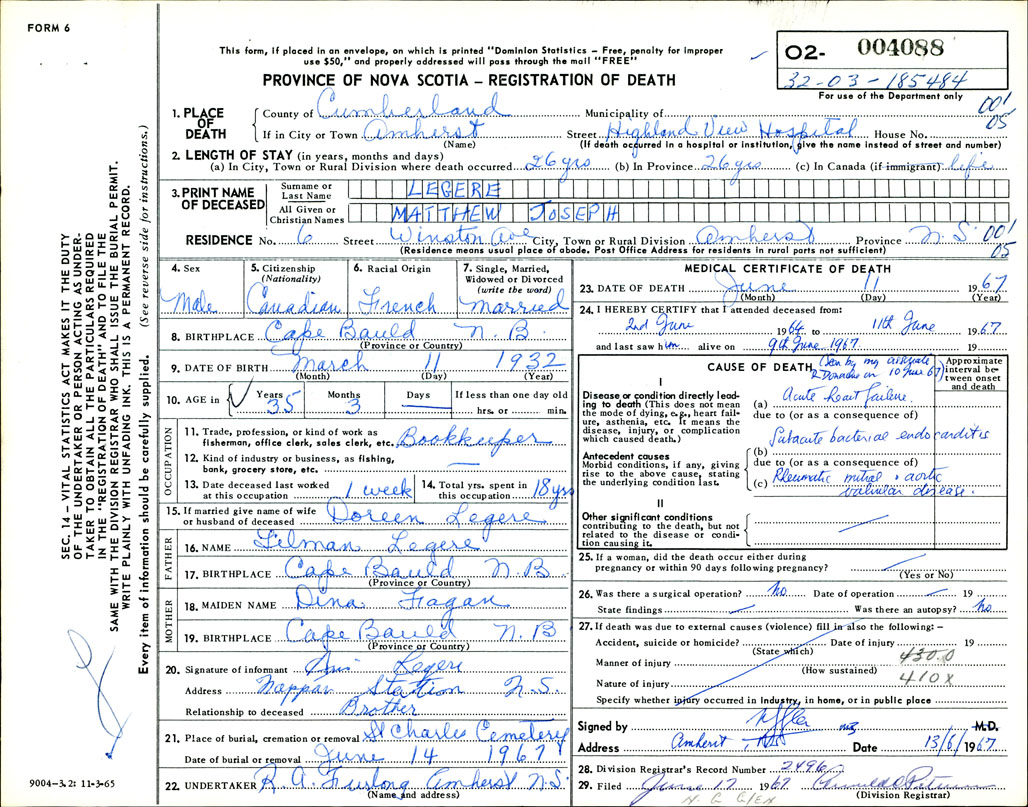 FORM 6
This form, if placed in an envelope, on which is printed "Dominion Statistics – Free, penalty for improper
use $50," and properly addressed will pass through the mail "FREE"
PROVINCE OF NOVA SCOTIA – REGISTRATION OF DEATH
02- 004088
32-03-185484
For use of the Department only
001
05
1. PLACE OF DEATH
County of Cumberland Municipality of
If in City or Town Amherst Street Highland View Hospital House No.
(Name) (If death occurred in a hospital or institution, give the name instead of street and number)
2. LENGTH OF STAY (in years, months and days)
(a) In City, Town or Rural Division where death occurred 26 yrs (b) In Province 26 yrs (c) In Canada (if immigrant) life
3. PRINT NAME OF DECEASED
Surname or Last Name LEGERE
All Given or Christian Names MATTHEW JOSEPH
RESIDENCE No. 6 Street Winston Ave City, Town or Rural Division Amherst Province N.S. 001
05
(Residence means usual place of abode. Post Office Address for residents in rural parts not sufficient)
4. Sex Male
5. Citizenship (Nationality) Canadian
6. Racial Origin French
7. Single, Married, Widowed or Divorced (write the word) married
8. BIRTHPLACE Cape Bauld N.B.
(Province or Country)
9. DATE OF BIRTH March 11 1932
(Month) (Day) (Year)
10. AGE in Years 35 Months 3 Days If less than one day old hrs. or min.
OCCUPATION
11. Trade, profession, or kind of work as
fisherman, office clerk, sales clerk, etc. Bookkeeper
12. Kind of industry or business, as fishing,
bank, grocery store, etc. —
13. Date deceased last worked
at this occupation 1 week
14. Total yrs. spent in
this occupation 18 yrs
15. If married give name of wife
or husband of deceased Doreen Legere
FATHER
16. NAME Tilman Legere
17. BIRTHPLACE Cape Bauld N.B
(Province or Country)
MOTHER
18. MAIDEN NAME Dina Fagan
19. BIRTHPLACE Cape Bauld N.B
(Province or Country)
20. Signature of informant Legere
Address Nappan Station N.S.
Relationship to deceased Brother
21. Place of burial, cremation or removal St Charles Cemetery
Date of burial or removal June 14 1967
22. UNDERTAKER R.A. Furlong Amherst N.S.
(Name and address)
MEDICAL CERTIFICATE OF DEATH
23. DATE OF DEATH June 11 1967
(Month) (Day) (Year)
24. I HEREBY CERTIFY that I attended deceased from:
2nd June 1964 to 11th June 1967
and last saw him alive on 9th June 1967 19
CAUSE OF DEATH (Seen by my associate
R Donahoe on 10 June 67)
Approximate interval between onset and death
I
Disease or condition directly leading to death (This does not mean the mode of dying, e.g., heart failure, asthenia, etc. It means the disease, injury, or complication which caused death.)
(a) Acute heart failure.
due to (or as a consequence of)
Subacute bacterial endocarditis
Antecedent causes
Morbid conditions, if any, giving rise to the above cause, stating the underlying condition last.
(b)
due to (or as a consequence of)
(c) Rheumatic mitral & aortic
valvular disease.
II
Other significant conditions
contributing to the death, but not related to the disease or condition causing it.
25. If a woman, did the death occur either during
pregnancy or within 90 days following pregnancy?
(Yes or No)
26. Was there a surgical operation? no. Date of operation 19
State findings Was there an autopsy? no
27. If death was due to external causes (violence) fill in also the following:–
Accident, suicide or homicide? Date of injury 19
(State which)
Manner of injury 430.0
(How sustained)
Nature of injury 410X
Specify whether injury occurred in Industry, in home, or in public place
Signed by M.D.
Address Amherst, NS Date 13/6/1967
28. Division Registrar's Record Number 2496
29. Filed June 17 1967
(Division Registrar)
SEC. 14 – VITAL STATISTICS ACT MAKES IT THE DUTY
OF THE UNDERTAKER OR PERSON ACTING AS UNDER-
TAKER TO OBTAIN ALL THE PARTICULARS REQUIRED
IN THE "REGISTRATION OF DEATH" AND TO FILE THE
SAME WITH THE DIVISION REGISTRAR WHO SHALL ISSUE THE BURIAL PERMIT.
WRITE PLAINLY WITH UNFADING INK. THIS IS A PERMANENT RECORD.
Every item of information should be carefully supplied. (See reverse side for instructions.)
9004–3.2: 11-3-65